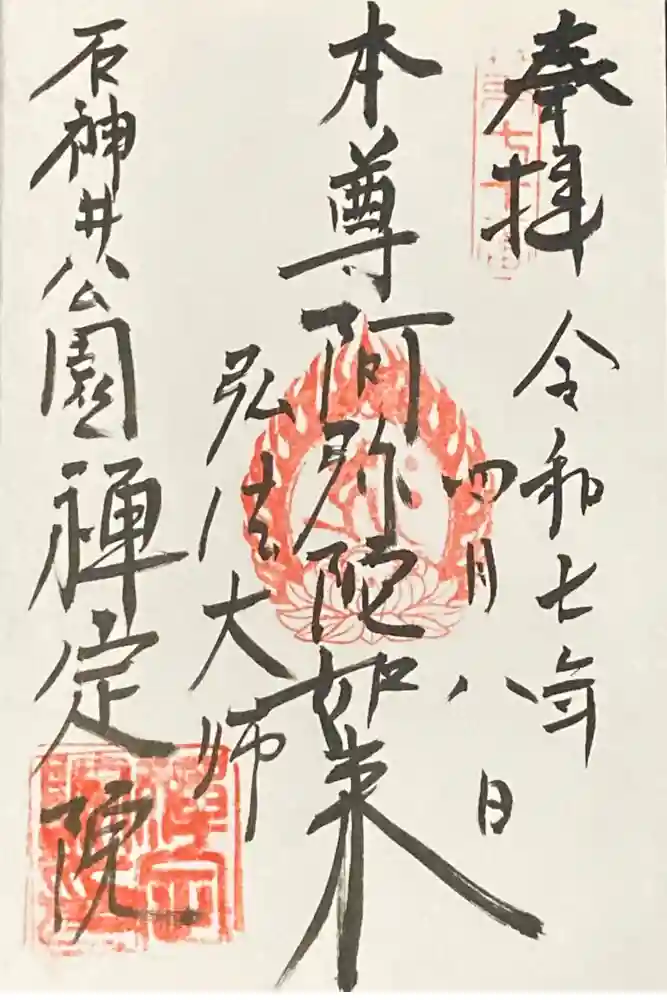 奉拝
令和七年
四月八日
本尊阿弥陀如来
弘法大師
石神井公園禅定院